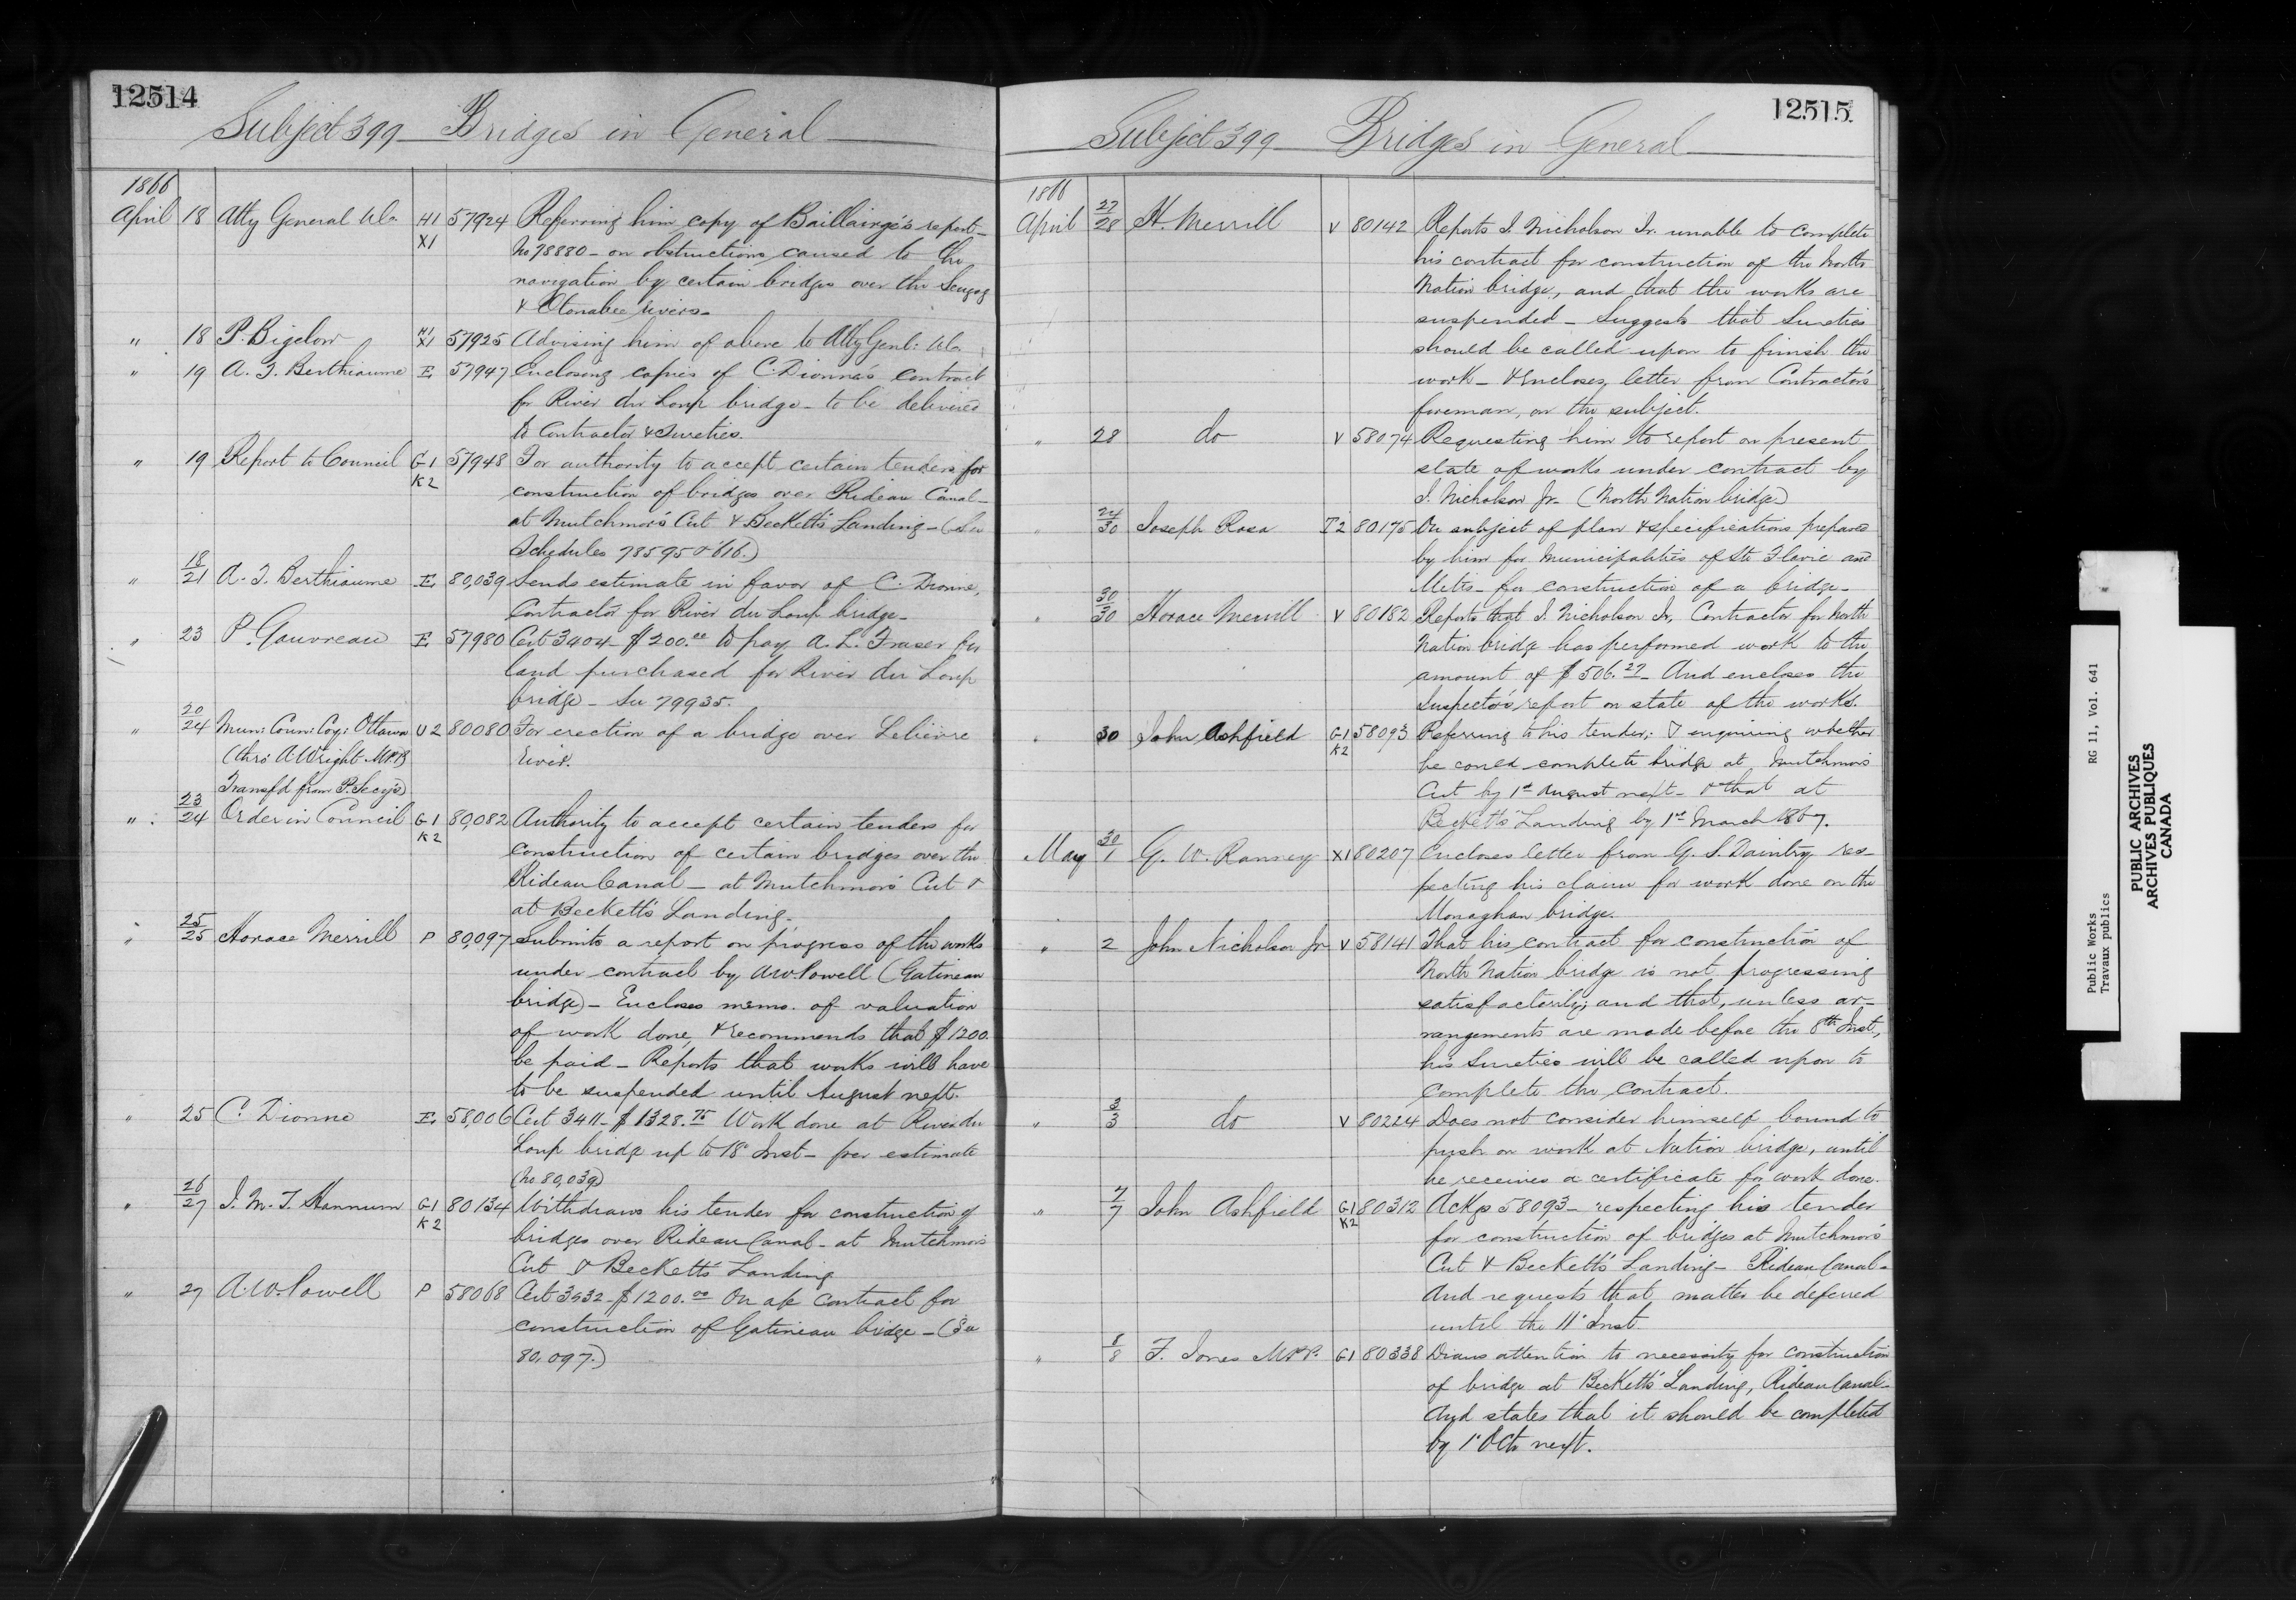 12514
Subject 399 Bridges in General
1866
April 18 Atty General U.Ca H1 X1 57924 Referring him copy of Baillairgé's report
No 78880 - on obstructions caused to the
navigation by certain bridges over the Scugog
& Otonabee rivers.
" 18 P. Bigelow H1 X1 57925 Advising him of above to Atty Genl: U.Ca
" 19 A. T. Berthiaume E 57947 Enclosing copies of C. Dionne's contract
for River du Loup bridge - to be delivered
to Contractor & Sureties.
" 19 Report to Council G1 K2 57948 For authority to accept certain tenders for
construction of bridges over Rideau Canal -
at Mutchmor's Cut & Beckett's Landing - (See
Schedules 78595 & 616.)
" 18/21 A. T. Berthiaume E 80,039 Sends estimate in favor of C. Dionne,
Contractor for River du Loup bridge -
" 23 P. Gauvreau E 57980 Cert 3404 - $200.00 to pay A. L. Fraser for
land purchased for River du Loup
bridge - See 79935.
" 20/24 Mun: Coun: Coy: Ottawa U2 80080 For erection of a bridge over Lelièvre
(thro' A Wright M.P.P. River.
Transf'd from P. Secy's)
" 23/24 Order in Council G1 K2 80,082 Authority to accept certain tenders for
construction of certain bridges over the
Rideau Canal - at Mutchmor's Cut &
at Beckett's Landing.
" 25/25 Horace Merrill P 80,097 Submits a report on progress of the works
under contract by A W Powell (Gatineau
bridge) - Encloses memo. of valuation
of work done, & recommends that $1200.
be paid - Reports that works will have
to be suspended until August next.
" 25 C. Dionne E 58,006 Cert 3411 - $1328.75 Work done at River du
Loup bridge up to 18 Inst - per estimate
(No 80,039)
" 26/27 J. M. T. Hannum G1 K2 80134 Withdraws his tender for construction of
bridges over Rideau Canal - at Mutchmor's
Cut & Beckett's Landing
" 27 A. W. Powell P 58068 Cert 3432 - $1200.00 On a/c contract for
construction of Gatineau bridge - (See
80,097.)
12515
Subject 399 Bridges in General
1866
April 27/28 H. Merrill V 80142 Reports J. Nicholson Jr. unable to complete
his contract for construction of the North
Nation bridge, and that the works are
suspended - Suggests that Sureties
should be called upon to finish the
work - & Encloses letter from Contractor's
foreman, on the subject.
" 28 do V 58074 Requesting him to report on present
state of works under contract by
J. Nicholson Jr. (North Nation bridge)
" 24/30 Joseph Rosa T2 80175 On subject of plan & specifications prepared
by him for Municipalities of Ste Flavie and
Metis - for construction of a bridge -
" 30/30 Horace Merrill V 80182 Reports that J. Nicholson Jr, Contractor for North
Nation bridge has performed work to the
amount of $506.27 - And encloses the
Inspector's report on state of the works.
" 30 John Ashfield G1 K2 58093 Referring to his tender; & enquiring whether
he could complete bridge at Mutchmor's
Cut by 1st August next - & that at
Beckett's Landing by 1st March 1867.
May 30/1 G. W. Ranney X1 80207 Encloses letter from G. S. Daintry res-
pecting his claim for work done on the
Monaghan bridge.
" 2 John Nicholson Jr V 58141 That his contract for construction of
North Nation bridge is not progressing
satisfactorily; and that, unless ar-
rangements are made before the 8th Inst,
his Sureties will be called upon to
complete the contract.
" 3/3 do V 80224 Does not consider himself bound to
push on work at Nation bridge, until
he receives a certificate for work done.
" 7/7 John Ashfield G1 K2 80312 Ackgs 58093 - respecting his tender
for construction of bridges at Mutchmor's
Cut & Beckett's Landing - Rideau Canal -
And requests that matter be deferred
until the 11th Inst.
" 8/8 F. Jones M.P.P. G1 80338 Draws attention to necessity for construction
of bridge at Beckett's Landing, Rideau Canal -
And states that it should be completed
by 1st Octr next.
Public Works RG 11, Vol. 641
Travaux publics
PUBLIC ARCHIVES
ARCHIVES PUBLIQUES
CANADA